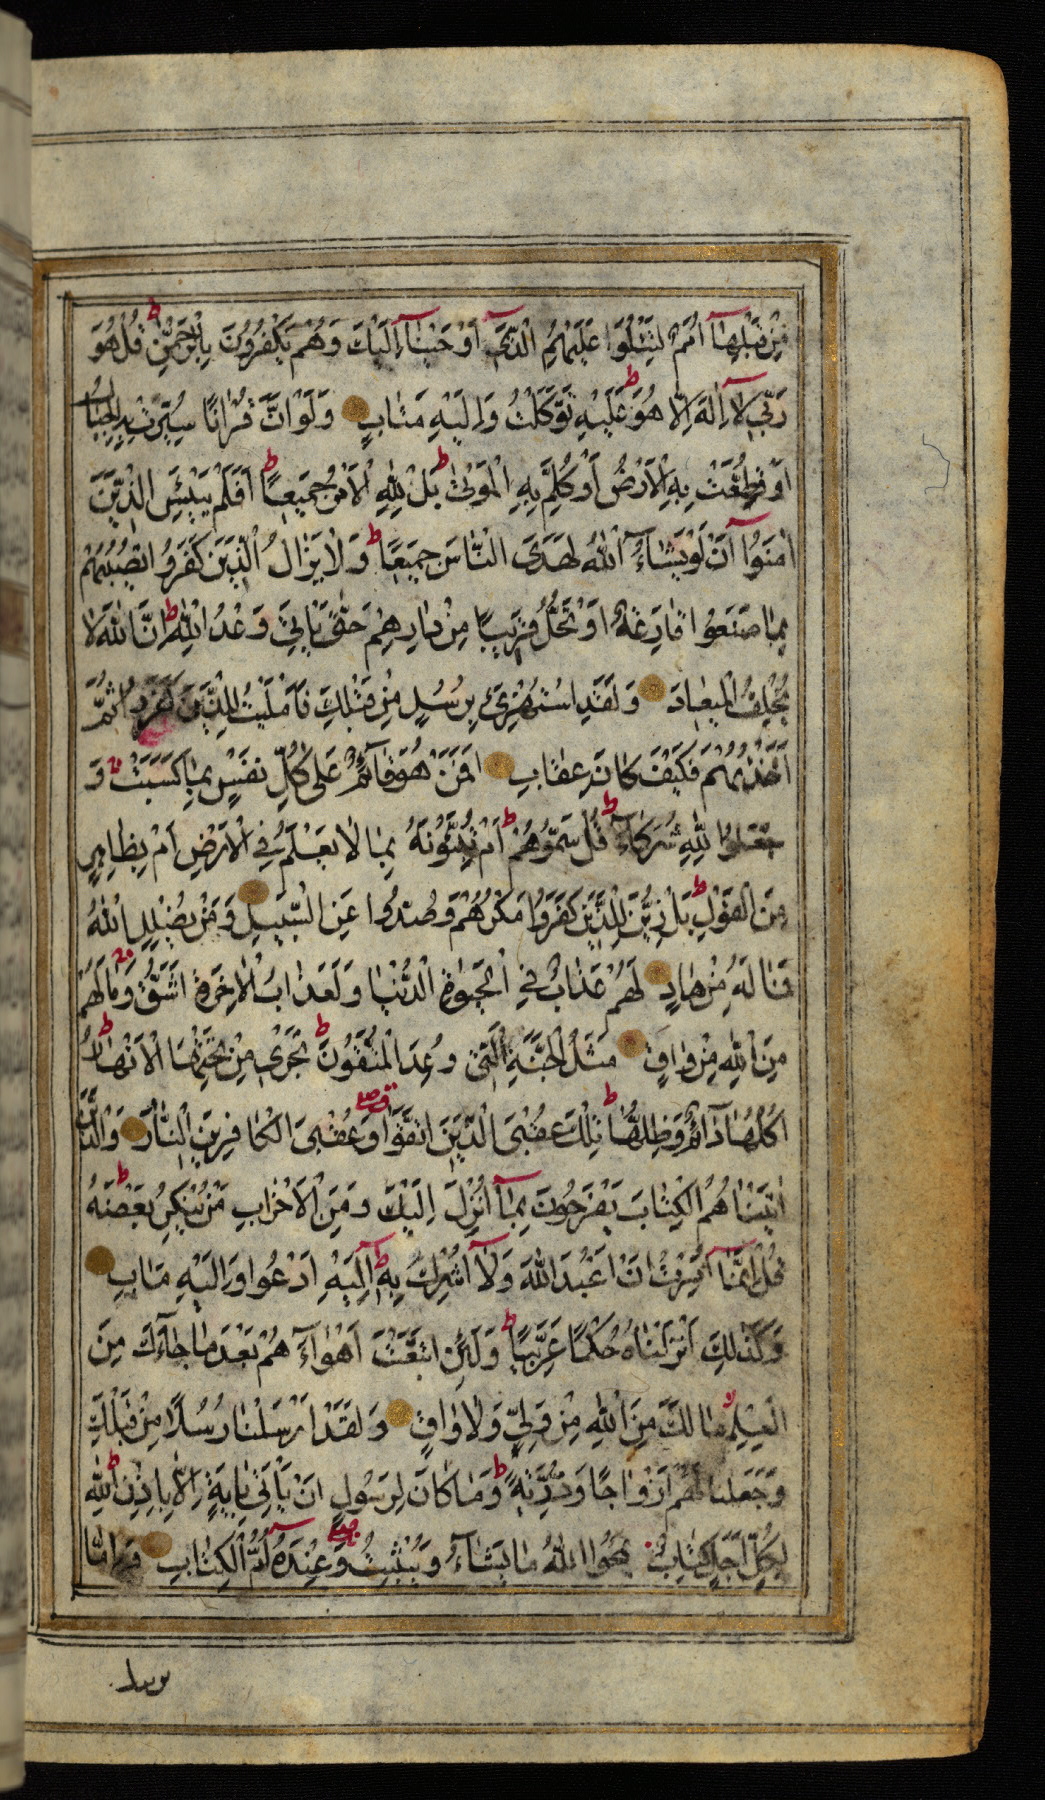 مِنْ قَبْلِهَآ اُمَمٌ لِتَتْلُوَا عَلَيْهِمُ الَّذِىٓ اَوْحَيْنَآ اِلَيْكَ وَهُمْ يَكْفُرُونَ بِالرَّحْمٰنِ ط قُلْ هُوَ
رَبِّى لَآ اِلٰهَ اِلَّا هُوَ ط عَلَيْهِ تَوَكَّلْتُ وَاِلَيْهِ مَتَابِ وَلَوْ اَنَّ قُرْاٰنًا سُيِّرَتْ بِهِ الْجِبَالُ
اَوْ قُطِّعَتْ بِهِ الْاَرْضُ اَوْ كُلِّمَ بِهِ الْمَوْتٰى ط بَلْ لِلّٰهِ الْاَمْرُ جَمِيعًا ط اَفَلَمْ يَيْئَسِ الَّذِينَ
اٰمَنُوآ اَنْ لَوْ يَشَآءُ اللّٰهُ لَهَدَى النَّاسَ جَمِيعًا ط وَلَا يَزَالُ الَّذِينَ كَفَرُوا تُصِيبُهُمْ
بِمَا صَنَعُوا قَارِعَةٌ اَوْ تَحُلُّ قَرِيبًا مِنْ دَارِهِمْ حَتّٰى يَاْتِىَ وَعْدُ اللّٰهِ ط اِنَّ اللّٰهَ لَا
يُخْلِفُ الْمِيعَادَ وَلَقَدِ اسْتُهْزِئَ بِرُسُلٍ مِنْ قَبْلِكَ فَاَمْلَيْتُ لِلَّذِينَ كَفَرُوا ثُمَّ
اَخَذْتُهُمْ فَكَيْفَ كَانَ عِقَابِ اَفَمَنْ هُوَ قَآئِمٌ عَلٰى كُلِّ نَفْسٍ بِمَا كَسَبَتْ وَ
جَعَلُوا لِلّٰهِ شُرَكَآءَ ط قُلْ سَمُّوهُمْ ط اَمْ تُنَبِّؤُنَهُ بِمَا لَا يَعْلَمُ فِى الْاَرْضِ اَمْ بِظَاهِرٍ
مِنَ الْقَوْلِ ط بَلْ زُيِّنَ لِلَّذِينَ كَفَرُوا مَكْرُهُمْ وَصُدُّوا عَنِ السَّبِيلِ وَمَنْ يُضْلِلِ اللّٰهُ
فَمَا لَهُ مِنْ هَادٍ لَهُمْ عَذَابٌ فِى الْحَيٰوةِ الدُّنْيَا وَلَعَذَابُ الْاٰخِرَةِ اَشَقُّ وَمَا لَهُمْ
مِنَ اللّٰهِ مِنْ وَاقٍ مَثَلُ الْجَنَّةِ الَّتِى وُعِدَ الْمُتَّقُونَ ط تَجْرِى مِنْ تَحْتِهَا الْاَنْهَارُ ط
اُكُلُهَا دَآئِمٌ وَظِلُّهَا ط تِلْكَ عُقْبَى الَّذِينَ اتَّقَوْا وَعُقْبَى الْكَافِرِينَ النَّارُ وَالَّذِينَ
اٰتَيْنَاهُمُ الْكِتَابَ يَفْرَحُونَ بِمَآ اُنْزِلَ اِلَيْكَ وَمِنَ الْاَحْزَابِ مَنْ يُنْكِرُ بَعْضَهُ ط
قُلْ اِنَّمَآ اُمِرْتُ اَنْ اَعْبُدَ اللّٰهَ وَلَآ اُشْرِكَ بِهِ ط اِلَيْهِ اَدْعُوا وَاِلَيْهِ مَاٰبِ
وَكَذٰلِكَ اَنْزَلْنَاهُ حُكْمًا عَرَبِيًّا ط وَلَئِنِ اتَّبَعْتَ اَهْوَآءَهُمْ بَعْدَ مَا جَآءَكَ مِنَ
الْعِلْمِ مَا لَكَ مِنَ اللّٰهِ مِنْ وَلِىٍّ وَلَا وَاقٍ وَلَقَدْ اَرْسَلْنَا رُسُلًا مِنْ قَبْلِكَ
وَجَعَلْنَا لَهُمْ اَزْوَاجًا وَذُرِّيَّةً ط وَمَا كَانَ لِرَسُولٍ اَنْ يَاْتِىَ بِاٰيَةٍ اِلَّا بِاِذْنِ اللّٰهِ ط
لِكُلِّ اَجَلٍ كِتَابٌ يَمْحُوا اللّٰهُ مَا يَشَآءُ وَيُثْبِتُ وَعِنْدَهُ اُمُّ الْكِتَابِ وَاِمَّا